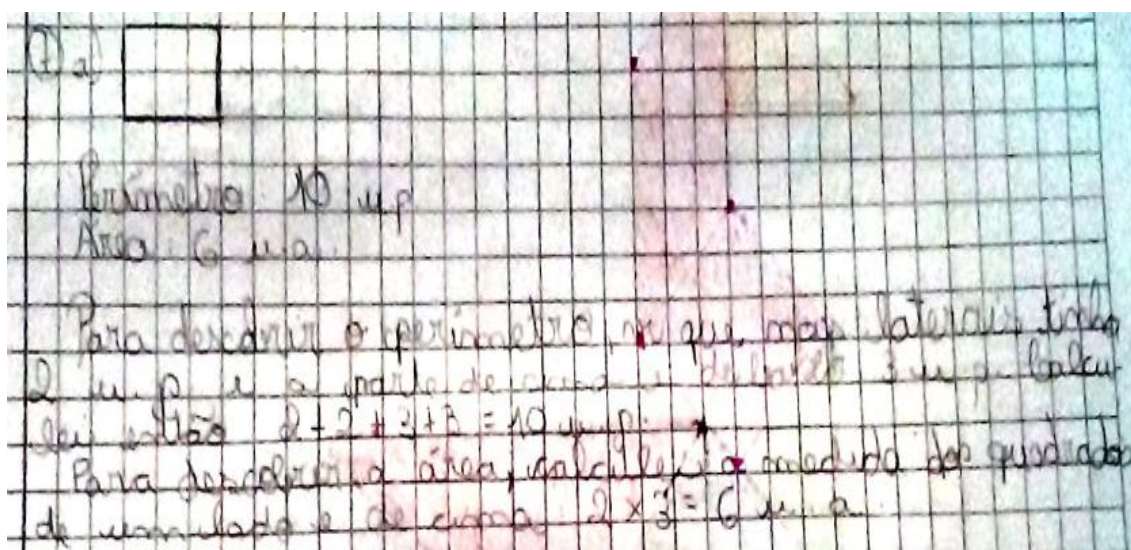 7 a)
Perímetro: 10 u.p
Área: 6 u.a.
Para descobrir o perímetro, vi que nas laterais tinha
2 u.p e a parte de cima e debaixo 3 u.p. Calcu
lei então 2+2+3+3 = 10 u.p.
Para descobrir a área, calculei a medida dos quadrados
de um lado e de cima: 2 x 3 = 6 u.a